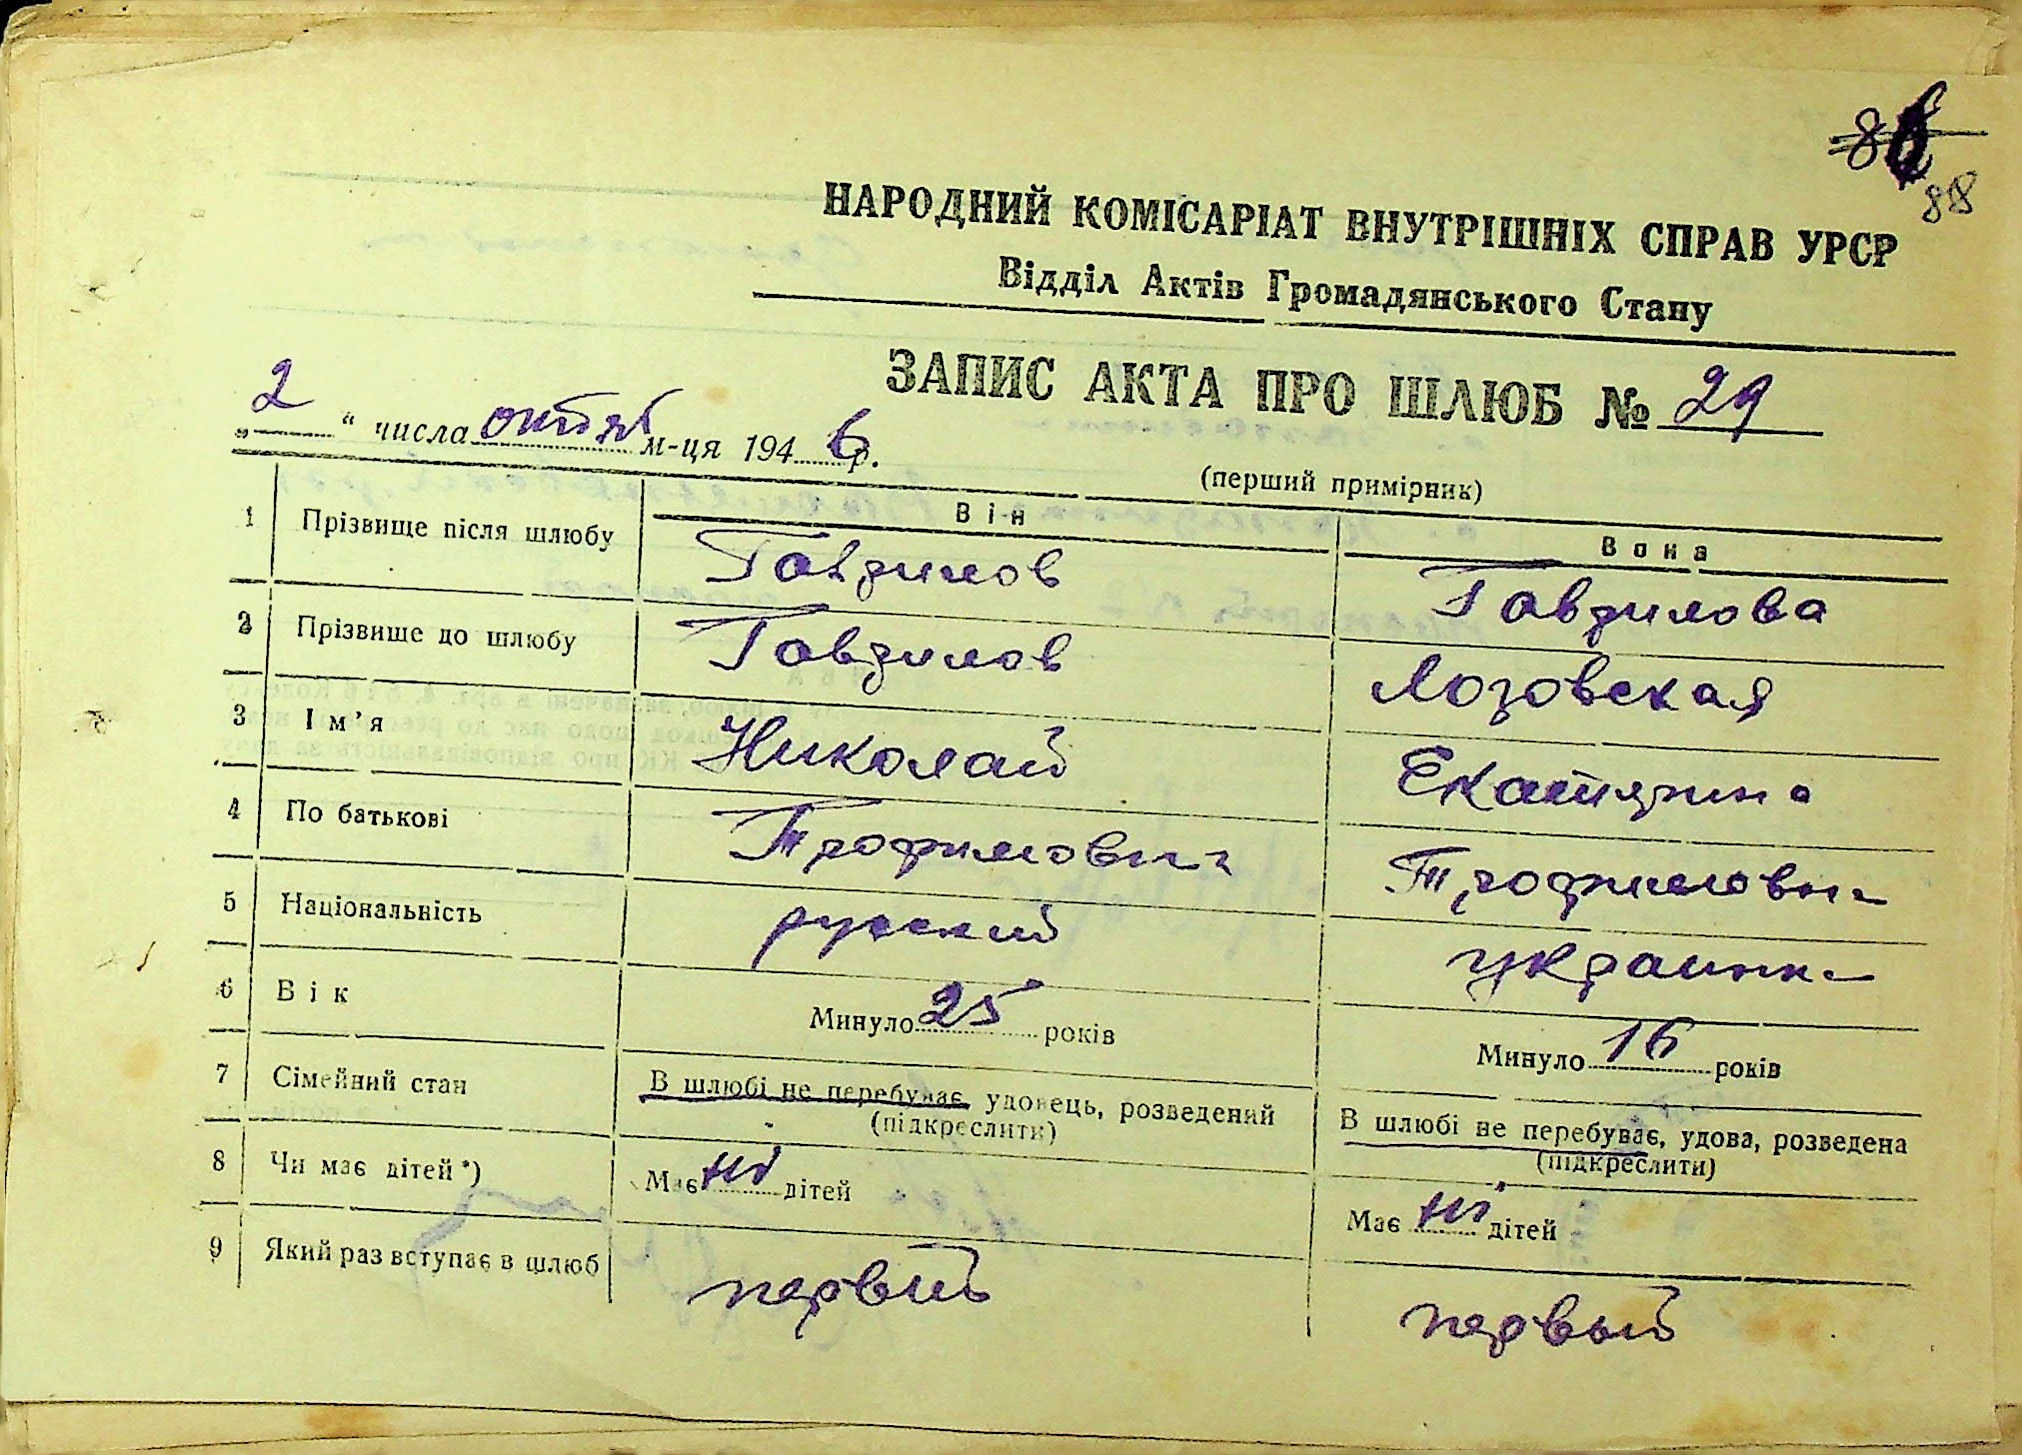 86
88
НАРОДНИЙ КОМІСАРІАТ ВНУТРІШНІХ СПРАВ УРСР
Відділ Актів Громадянського Стану
ЗАПИС АКТА ПРО ШЛЮБ № 29
„ 2 “ числа октяб м-ця 194 6 р.
(перший примірник)
Він
Вона
1 Прізвище після шлюбу Гаврилов Гаврилова
2 Прізвище до шлюбу Гаврилов Лозовская
3 Ім’я Николай Екатярина
4 По батькові Трофимович Трофимовн
5 Національність русский украинк
6 Вік Минуло 25 років Минуло 16 років
7 Сімейний стан В шлюбі не перебуває, удовець, розведений В шлюбі не перебуває, удова, розведена
(підкреслити) (підкреслити)
8 Чи має дітей *) Має ні дітей Має ні дітей
9 Який раз вступає в шлюб первый первый